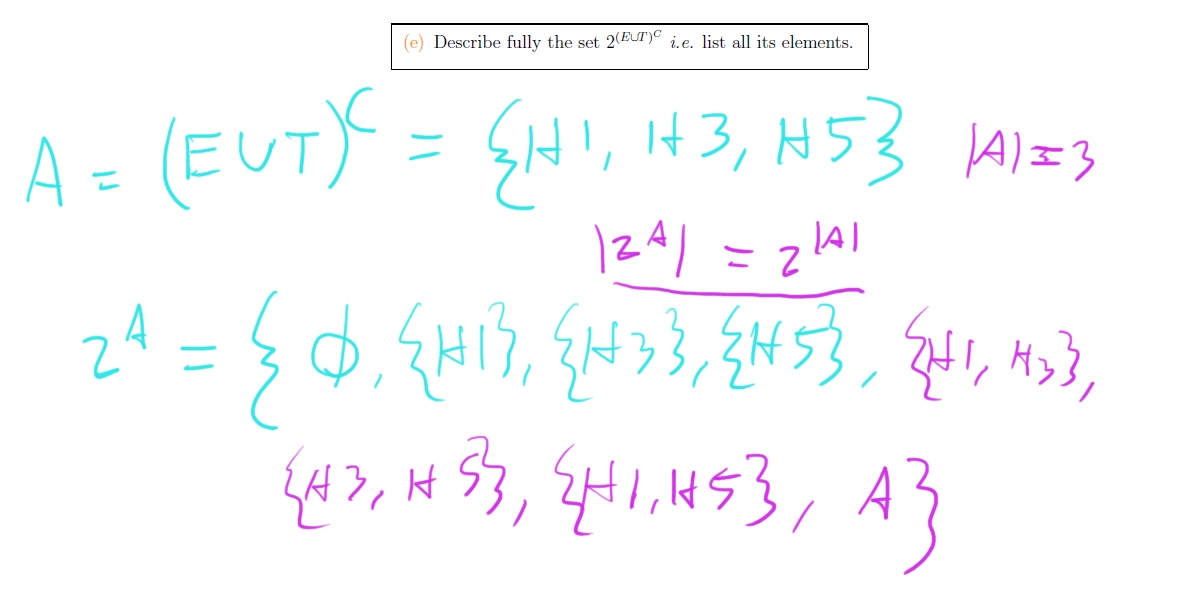 (e) Describe fully the set 2^{(E∪T)^C} i.e. list all its elements.
A = (E∪T)^C = {H1, H3, H5} |A| = 3
|2^A| = 2^{|A|}
2^A = {ϕ, {H1}, {H3}, {H5}, {H1, H3},
{H3, H5}, {H1, H5}, A}